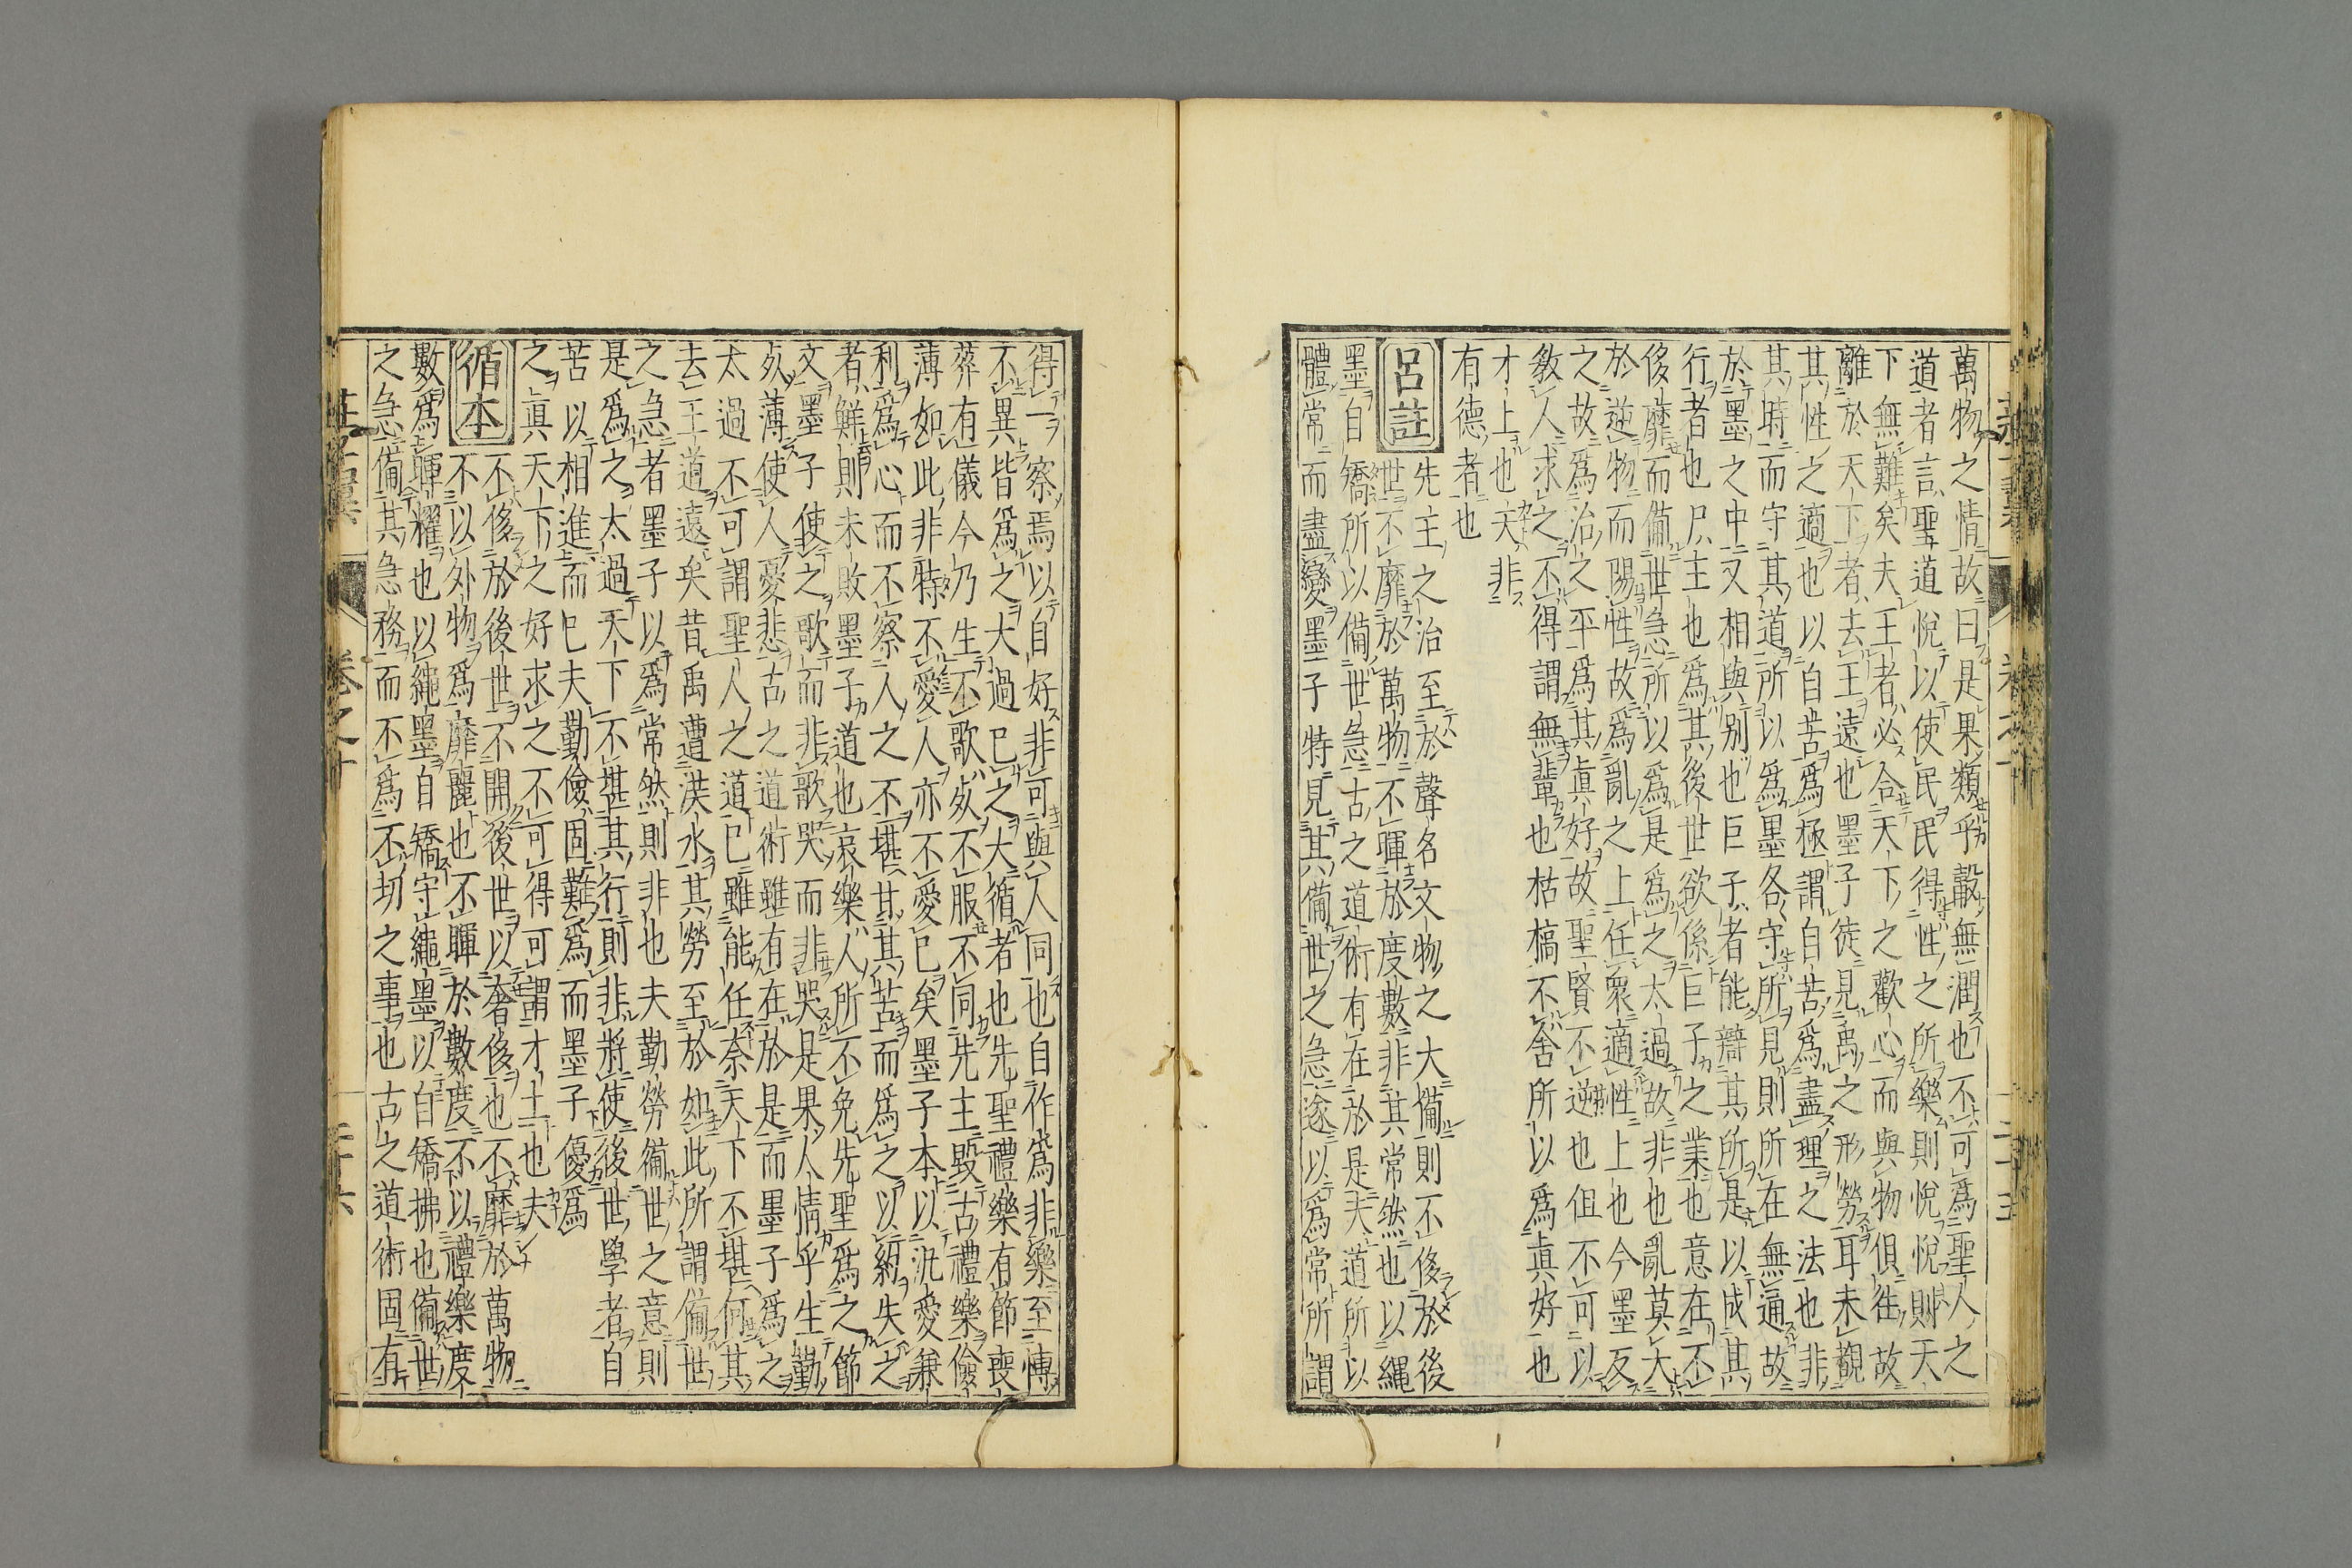 萬物之情故曰是果類乎瞉無潤也不可爲聖人之
道者言聖道悅以使民民得性之所樂則悅悅則天
下無難矣夫王者必合天下之歡心而與物俱徃故
離於天下者去王遠也墨子徒見禹之形勞耳未覩
其性之適也以自苦爲極謂自苦爲盡理之法也非
其時而守其道所以爲墨各守所見則所在無通故
於墨之中又相與别也巨子者能辯其所是以成其
行者也尸主也爲其後世欲係巨子之業也意在不
侈靡而備世急所以爲是爲之太過故非也亂莫大
於逆物而陽性故爲亂之上任衆適性上也今墨反
之故爲治之平爲其眞好故聖賢不逆也但不可以
敎人求之不得謂無輩也枯槁不舍所以爲眞好也
才上也天非
有德者也
呂註 先主之治至於聲名文物之大備則不侈於後
世不靡於萬物不暉於度數非其常然也以繩
墨自矯所以備世急古之道術有在於是夫道所以
體常而盡變墨子特見其備世之急遂以爲常所謂
得一察焉以自好非可與人同也自作爲非樂至慱
不異皆爲之大過已之大循者也先聖禮樂有節喪
葬有儀今乃生不歌死不服不同先主毀古禮樂儉
薄如此非特不愛人亦不愛已矣墨子本以汎愛兼
利爲心而不察人之不堪其苦而爲之以紹失之
者鮮則未敗墨子道也哀樂人所不免先聖爲之節
文墨子使之歌而非歌哭而非哭是果人情乎生勤
死薄使人憂悲古之道術雖有在於是而墨子爲之
太過不可謂聖人之道已雖能任奈天下不堪何其
去王道遠矣昔禹遭洪水其勞至於如此所謂備世
之急者墨子以爲常然則非也夫勤勞備世之意則
是爲之太過天下不堪其行則非將使後世學者自
苦以相進而已夫勤儉固難爲而墨子優爲
之眞天下之好求之不可得可謂才士也夫
循本 不侈於後世不開後世以奢侈也不靡於萬物
不以外物爲靡麗也不暉於數度不以禮樂度
數爲暉耀也以繩墨自矯守繩墨以自矯拂也備世
之急備其急務而不爲不切之事也古之道術固有